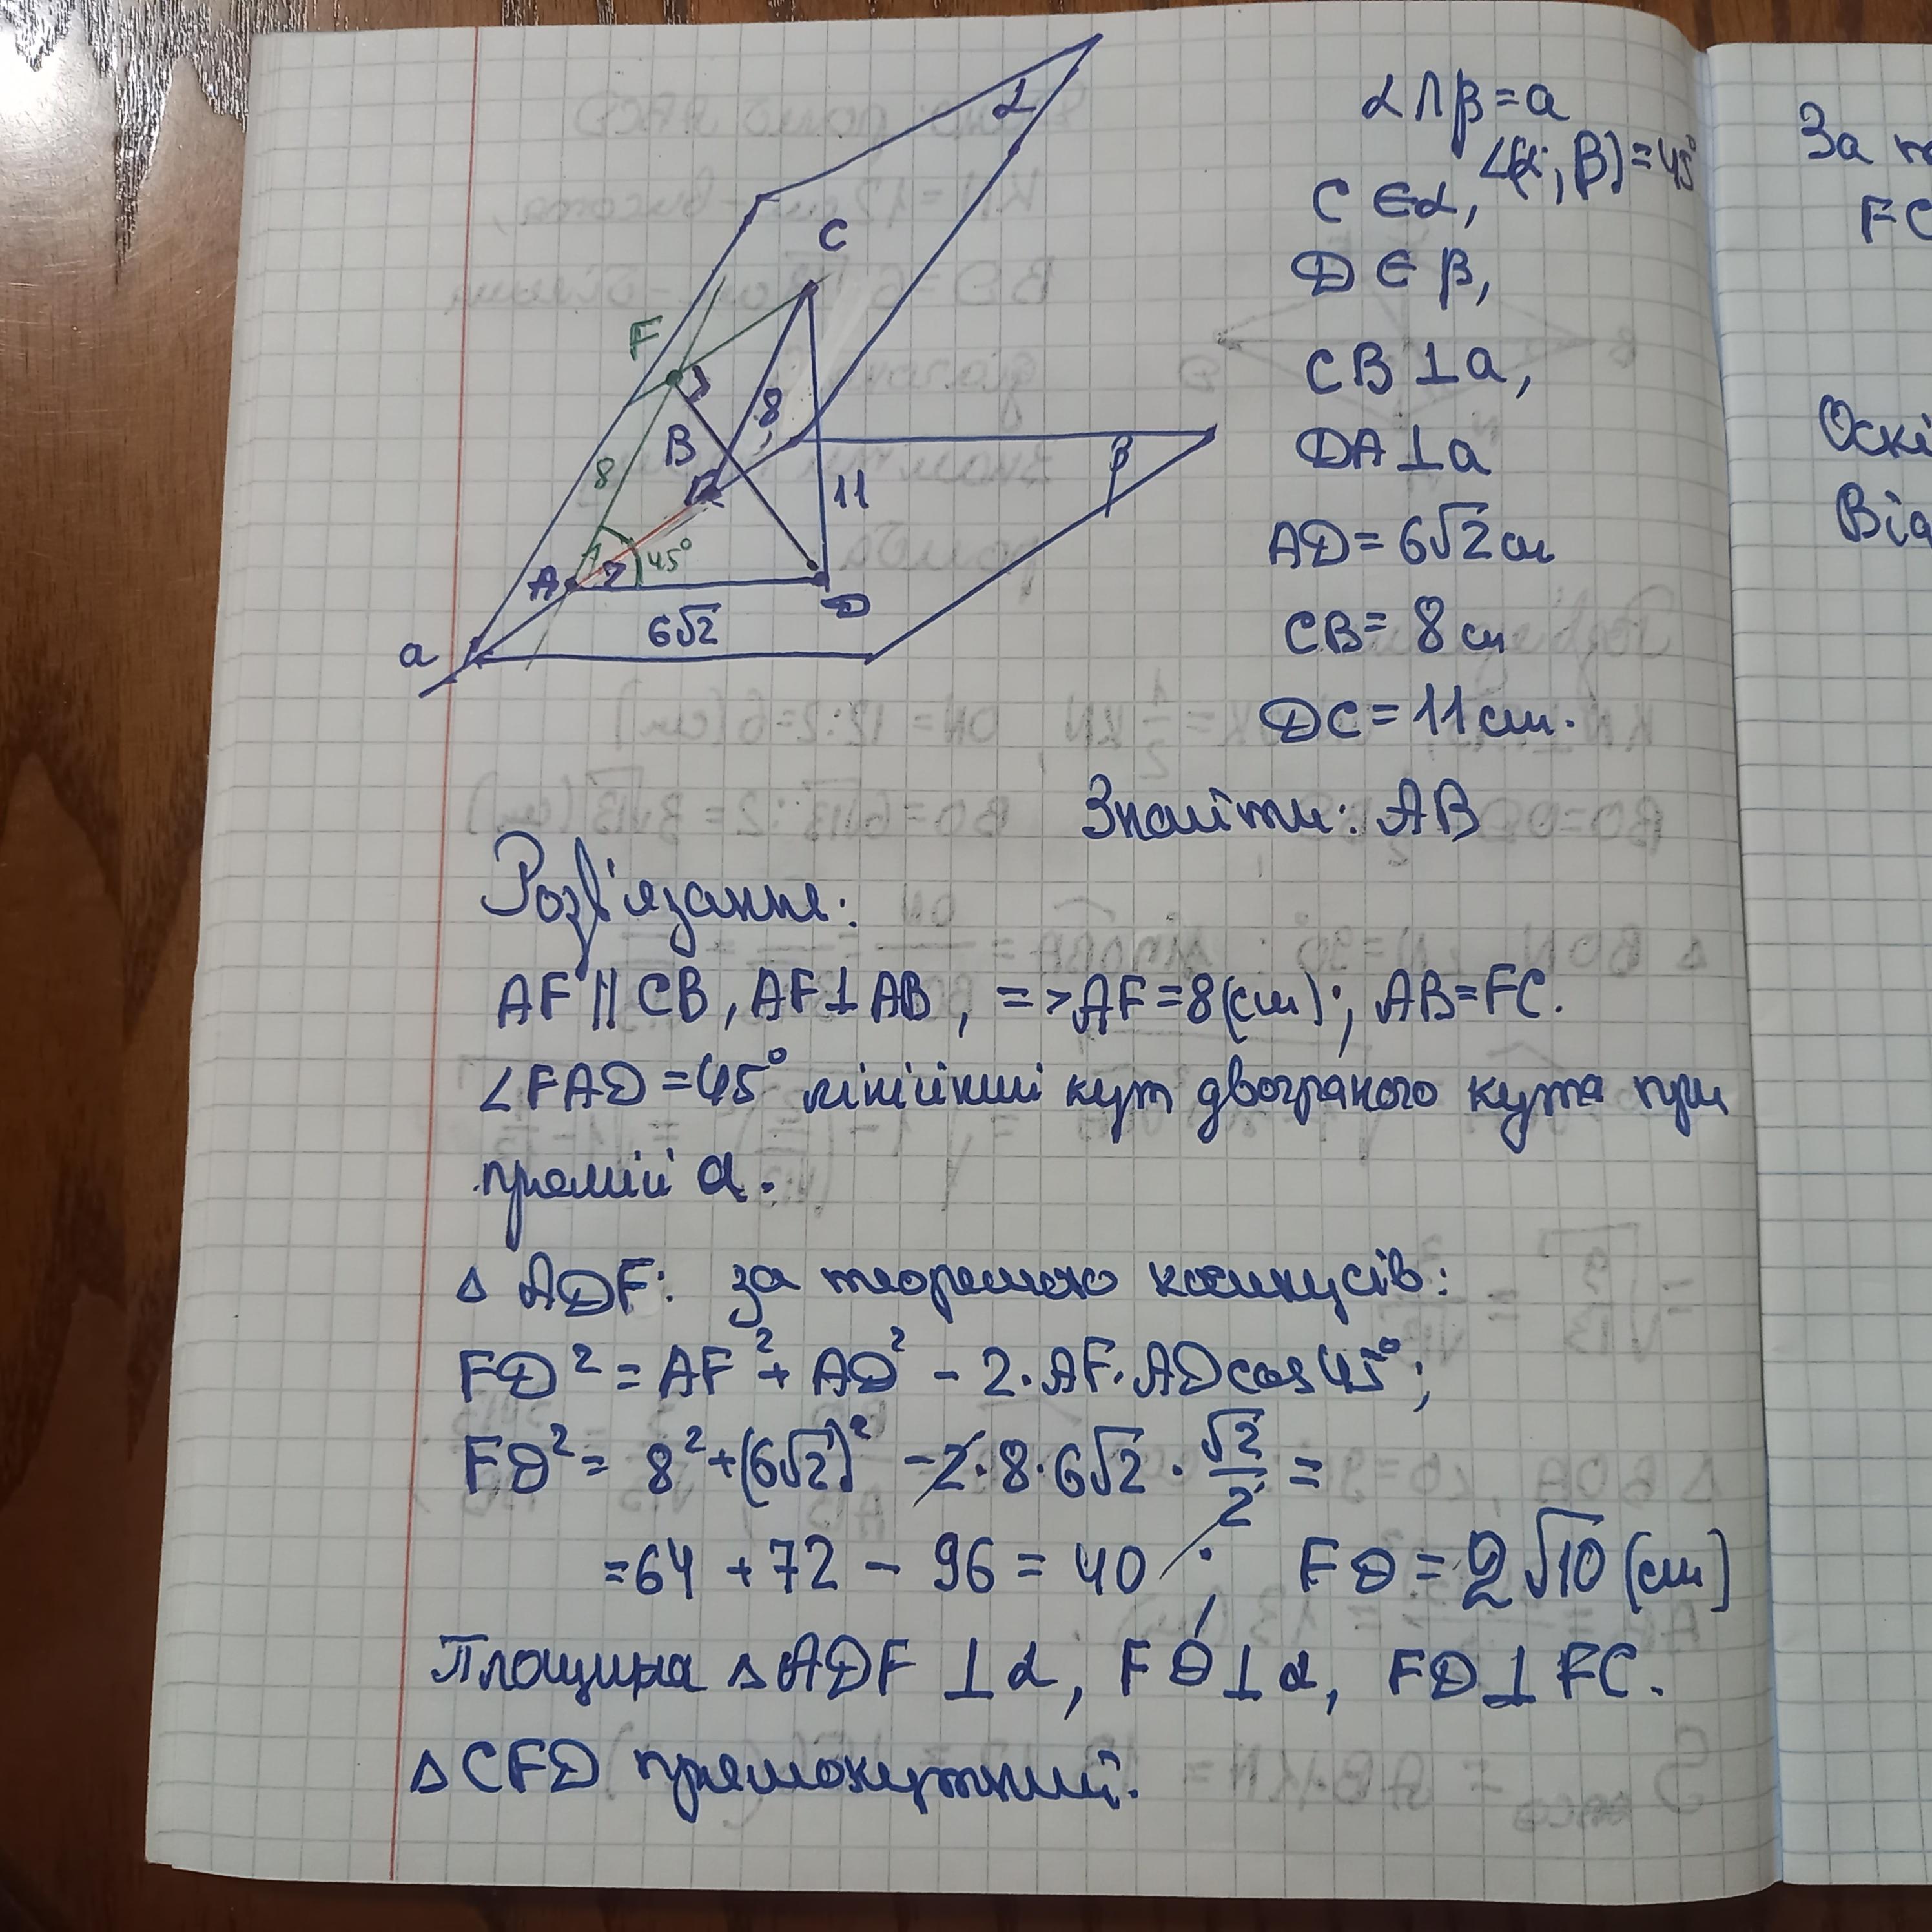 α
C
F
8
B
8
11
β
A
45°
D
6√2
a
α∩β=a
∠(α; β)=45°
C∈α,
D∈β,
CB⊥a,
DA⊥a
AD=6√2см
CB=8см
DC=11см.
Знайти: AB
Розв'язання:
AF||CB, AF⊥AB, =>AF=8(см); AB=FC.
∠FAD=45° лінійний кут двогранного кута при
прямій a.
△ADF: за теоремою косинусів:
FD²=AF²+AD²-2·AF·ADcos45°;
FD²=8²+(6√2)²-2·8·6√2·√2/2=
=64+72-96=40; FD=2√10(см)
Площина △ADF⊥α, FD⊥α, FD⊥FC.
△CFD прямокутний.
За
FC
Оскі
Від